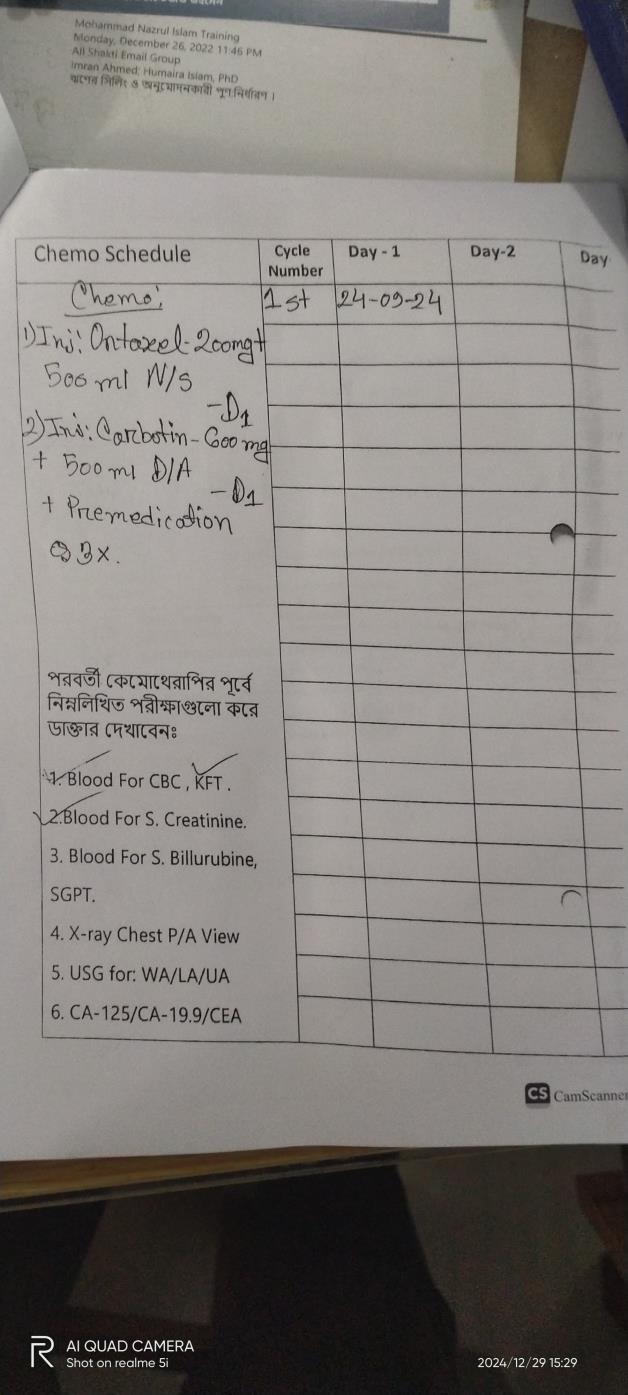 Mohammad Nazrul Islam Training
Monday, December 26, 2022 11:46 PM
All Shakti Email Group
Imran Ahmed; Humaira Islam, PhD
ঋণের সিলিং ও অনুমোদনকারী পুণ:নির্ধারণ ।
Chemo Schedule
Cycle Number
Day - 1
Day-2
Day
Chemo:
1st
24-09-24
1) Inj: Ontaxel-200mg+
500 ml N/S
-D1
2) Inj: Carbotin-600 mg
+ 500 ml D/A
-D1
+ Premedication
পরবর্তী কেমোথেরাপির পূর্বে
নিম্নলিখিত পরীক্ষাগুলো করে
ডাক্তার দেখাবেনঃ
1. Blood For CBC , KFT.
2.Blood For S. Creatinine.
3. Blood For S. Billurubine,
SGPT.
4. X-ray Chest P/A View
5. USG for: WA/LA/UA
6. CA-125/CA-19.9/CEA
CS CamScanner
R AI QUAD CAMERA
Shot on realme 5i
2024/12/29 15:29